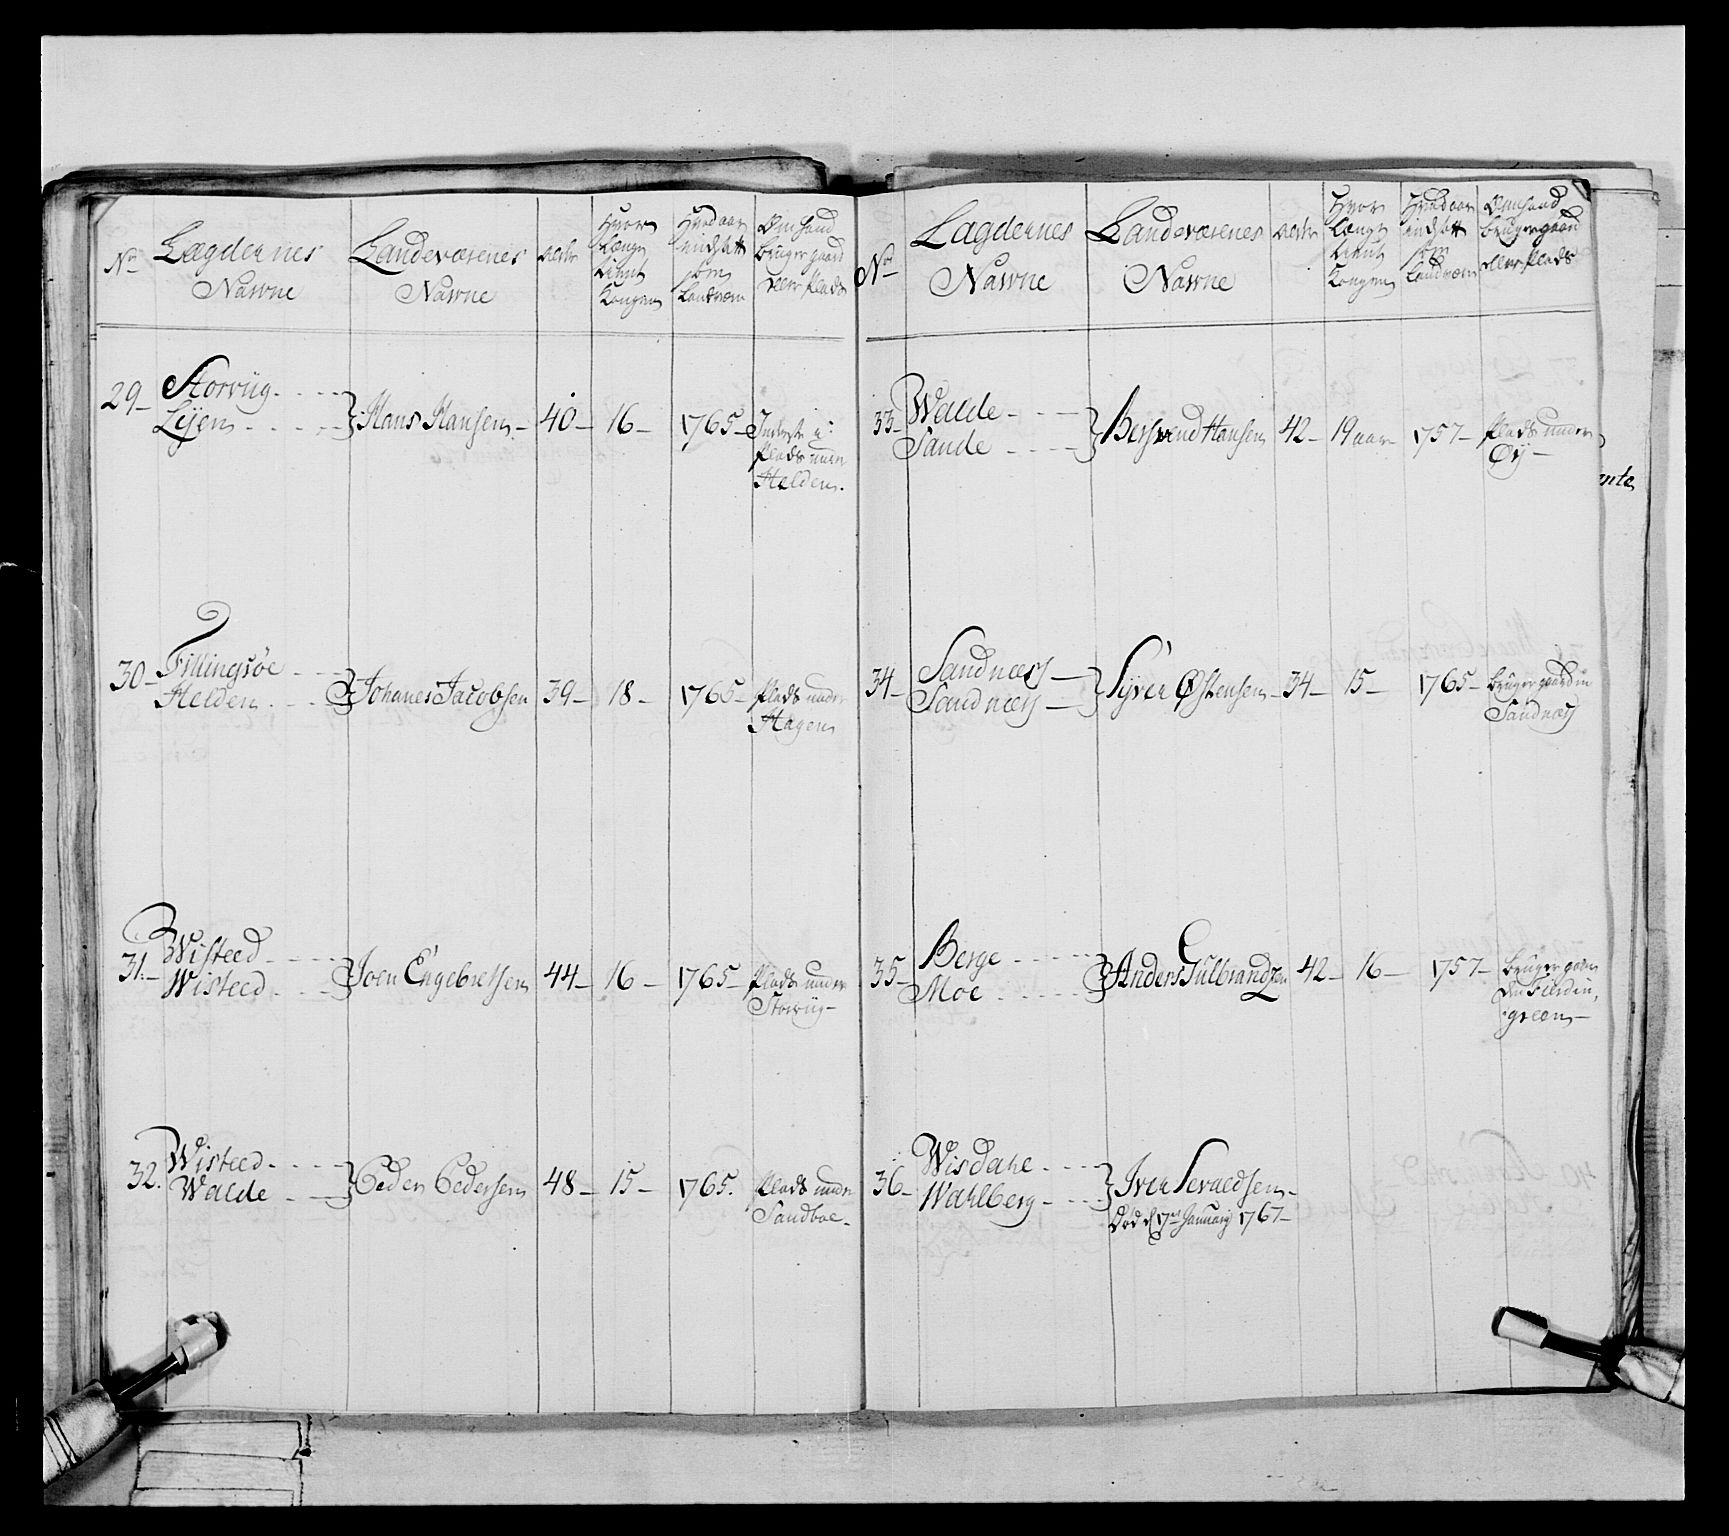 No
Lægdernes
Navne
Landeværenes
Navne
Alder
Hvor
Længe
tient
Kongen
Hvad aar
indsatt
som
Landværn
Om hand
bruger gaard
eller Plads
29- Storviig
Lijen
Hans Hansen - 40- 16- 1765- Inderste i
Plads under
Helden.
30- Fillingsøe
Helden
Johanes Jacobsen 39- 18- 1765- Plads under
Hagen
31- Wisteed
Wisteed
Joen Engebretsen 44- 16- 1765- Plads under
Storviig-
32. Wisteed
Walde
Peder Pedersen 48- 15- 1765. Plads under
Sandboe-
No
Lægdernes
Navne
Landeværenes
Navne
Alder
Hvor
Længe
tient
Kongen
Hvad aar
indsatt
som
Landværn
Om hand
bruger gaard
eller Plads
33- Walde
Sande
Bersvend Hansen 42- 19 aar 1757- Plads under
Øy-
34- Sandnæss
Sandnæss
Syver Østensen- 34- 15- 1765- bruger gaarden
Sandnæss
35- Berge
Moe
Anders Gulbrandzen 42- 16- 1757- bruger gaarden
green-
36- Wisdahl
Wahlberg
Iver Sevaldsen-
Død d 17de January 1767-